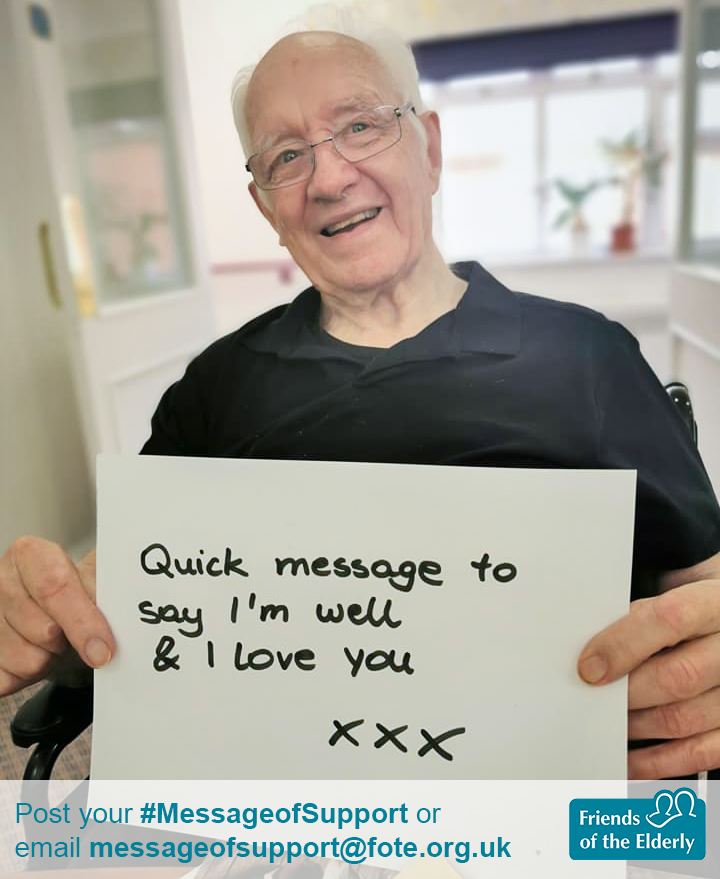 Quick message to
say I'm well
& I love you
xxx
Post your #MessageofSupport or
email messageofsupport@fote.org.uk
Friends
of the Elderly